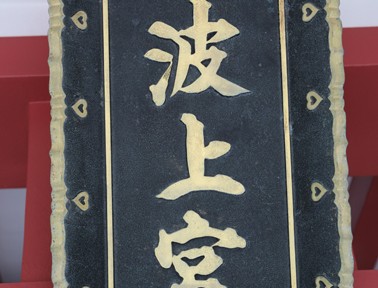 波上宮